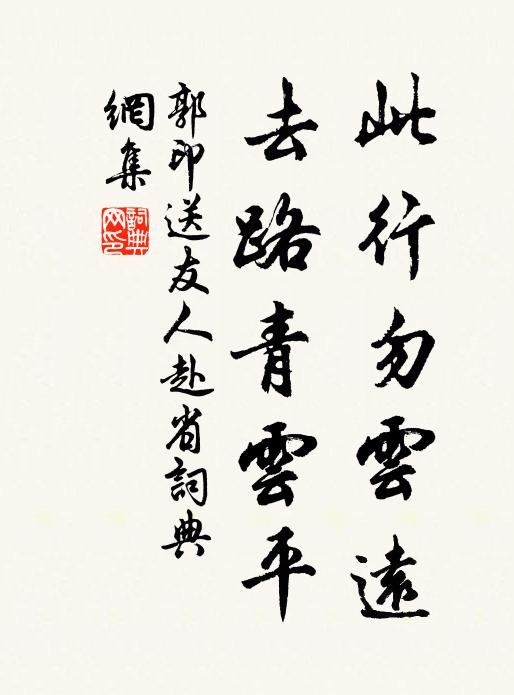 此行勿雲遠
去路青雲平
郭印送友人赴省詞典
網集
詞典
网印